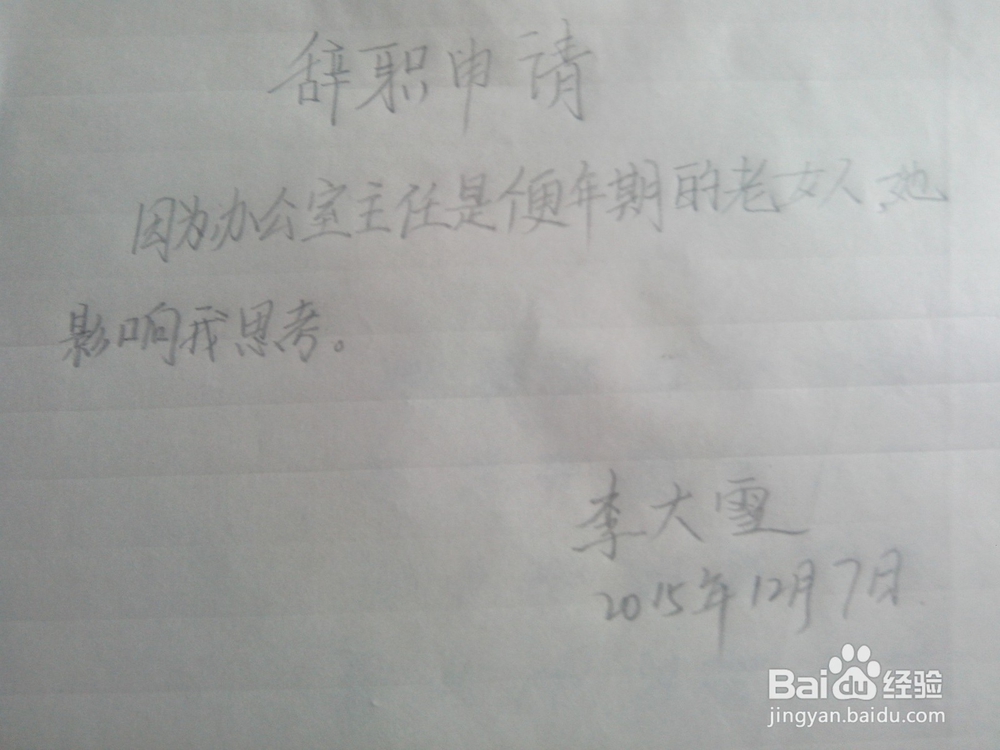 辞职申请
因为办公室主任是便年期的老女人,她
影响我思考。
李大雪
2015年12月7日.
Baidu经验
jingyan.baidu.com